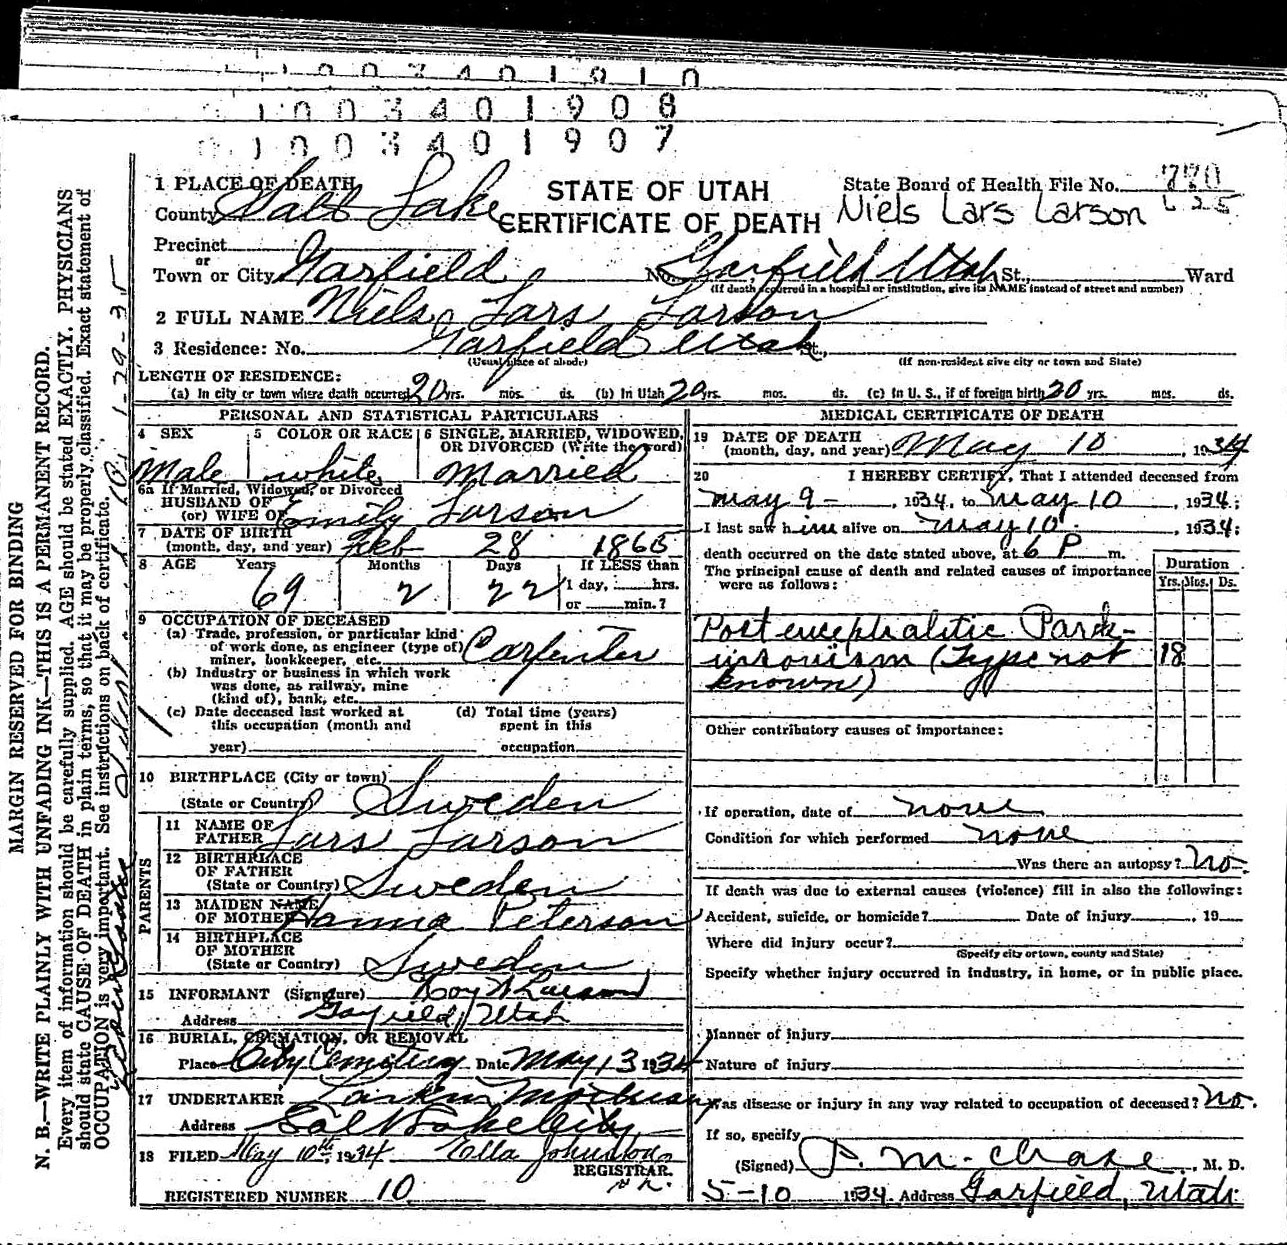 1003401910
1003401908
1003401907
1 PLACE OF DEATH
County Salt Lake
STATE OF UTAH
CERTIFICATE OF DEATH
State Board of Health File No. 770
Niels Lars Larson
Precinct
or
Town or City Garfield No. Garfield Utah St., Ward
(If death occurred in a hospital or institution, give its NAME instead of street and number)
2 FULL NAME Niels Lars Larson
3 Residence: No. Garfield Utah St.,
(Usual place of abode) (If non-resident give city or town and State)
LENGTH OF RESIDENCE:
(a) In city or town where death occurred 20 yrs. mos. ds. (b) In Utah 20 yrs. mos. ds. (c) In U. S., if of foreign birth 20 yrs. mos. ds.
PERSONAL AND STATISTICAL PARTICULARS
4 SEX 5 COLOR OR RACE 6 SINGLE, MARRIED, WIDOWED,
OR DIVORCED (Write the word)
Male white Married
6a If Married, Widowed, or Divorced
HUSBAND OF
(or) WIFE OF Emily Larson
7 DATE OF BIRTH
(month, day, and year) Feb 28 1865
8 AGE Years Months Days If LESS than
69 2 22 1 day, hrs.
or min.?
9 OCCUPATION OF DECEASED
(a) Trade, profession, or particular kind
of work done, as engineer (type of)
miner, bookkeeper, etc. Carpenter
(b) Industry or business in which work
was done, as railway, mine
(kind of), bank, etc.
(c) Date deceased last worked at
this occupation (month and
year)
(d) Total time (years)
spent in this
occupation
10 BIRTHPLACE (City or town)
(State or Country) Sweden
PARENTS
11 NAME OF
FATHER Lars Larson
12 BIRTHPLACE
OF FATHER
(State or Country) Sweden
13 MAIDEN NAME
OF MOTHER Hanna Peterson
14 BIRTHPLACE
OF MOTHER
(State or Country) Sweden
15 INFORMANT (Signature) Roy N Larson
Address Garfield, Utah
16 BURIAL, CREMATION, OR REMOVAL
Place City Cemetery Date May 13 1934
17 UNDERTAKER Larkin Mortuary
Address Salt Lake City
18 FILED May 10th, 1934 Ella Johnston
REGISTRAR.
REGISTERED NUMBER 10
MEDICAL CERTIFICATE OF DEATH
19 DATE OF DEATH
(month, day, and year) May 10, 1934
20 I HEREBY CERTIFY, That I attended deceased from
May 9 - , 1934, to May 10 , 1934;
I last saw him alive on May 10. , 1934;
death occurred on the date stated above, at 6 P m.
The principal cause of death and related causes of importance
were as follows:
Duration
Yrs. Mos. Ds.
Post encephalitic Park-
insonism (Type not 18
known)
Other contributory causes of importance:
If operation, date of none
Condition for which performed none
Was there an autopsy? No.
If death was due to external causes (violence) fill in also the following:
Accident, suicide, or homicide? Date of injury , 19
Where did injury occur?
(Specify city or town, county and State)
Specify whether injury occurred in industry, in home, or in public place.
Manner of injury
Nature of injury
Was disease or injury in any way related to occupation of deceased? No.
If so, specify
(Signed) P. M. Chase , M. D.
5-10 1934 Address Garfield, Utah
MARGIN RESERVED FOR BINDING
N. B.—WRITE PLAINLY WITH UNFADING INK—THIS IS A PERMANENT RECORD.
Every item of information should be carefully supplied. AGE should be stated EXACTLY. PHYSICIANS
should state CAUSE OF DEATH in plain terms, so that it may be properly classified. Exact statement of
OCCUPATION is very important. See instructions on back of certificate.
1-29-35